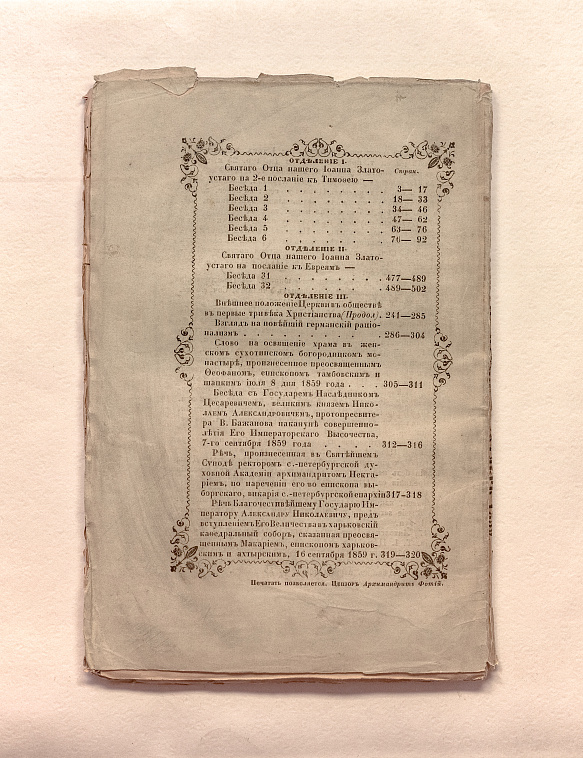 ОТДѢЛЕНІЕ I.
Святаго Отца нашего Іоанна Злато- Стран.
устаго на 2-е посланіе къ Тимоѳею —
Бесѣда 1 . . . . . . . . 3— 17
Бесѣда 2 . . . . . . . . 18— 33
Бесѣда 3 . . . . . . . . 34— 46
Бесѣда 4 . . . . . . . . 47— 62
Бесѣда 5 . . . . . . . . 63— 76
Бесѣда 6 . . . . . . . . 76— 92
ОТДѢЛЕНІЕ II.
Святаго Отца нашего Іоанна Злато-
устаго на посланіе къ Евреямъ —
Бесѣда 31 . . . . . . . . 477—489
Бесѣда 32 . . . . . . . . 489—502
ОТДѢЛЕНІЕ III.
Внѣшнее положеніе Церкви въ обществѣ
въ первые три вѣка Христіанства (Продол). 241—285
Взглядъ на новѣйшій германскій раціо-
нализмъ . . . . . . . . . 286—304
Слово на освященіе храма въ жен-
скомъ сухотинскомъ богородицкомъ мо-
настырѣ, произнесенное преосвященнымъ
Ѳеофаномъ, епископомъ тамбовскимъ и
шацкимъ іюля 8 дня 1859 года . . . 305—311
Бесѣда съ Государемъ Наслѣдникомъ
Цесаревичемъ, великимъ княземъ Нико-
лаемъ Александровичемъ, протопресвите-
ра В. Бажанова наканунѣ совершенно-
лѣтія Его Императорскаго Высочества,
7-го сентября 1859 года . . . . 312—316
Рѣчь, произнесенная въ Святѣйшемъ
Сѵнодѣ ректоромъ с.-петербургской ду-
ховной Академіи архимандритомъ Некта-
ріемъ, по нареченіи его во епископа вы-
боргскаго, викарія с.-петербургской епархіи 317—318
Рѣчь Благочестивѣйшему Государю Им-
ператору Александру Николаевичу, предъ
вступленіемъ Его Величества въ харьковскій
каѳедральный соборъ, сказанная преосвя-
щеннымъ Макаріемъ, епископомъ харьков-
скимъ и ахтырскимъ, 16 сентября 1859 г. 319—320
Печатать позволяется. Цензоръ Архимандритъ Фотій.